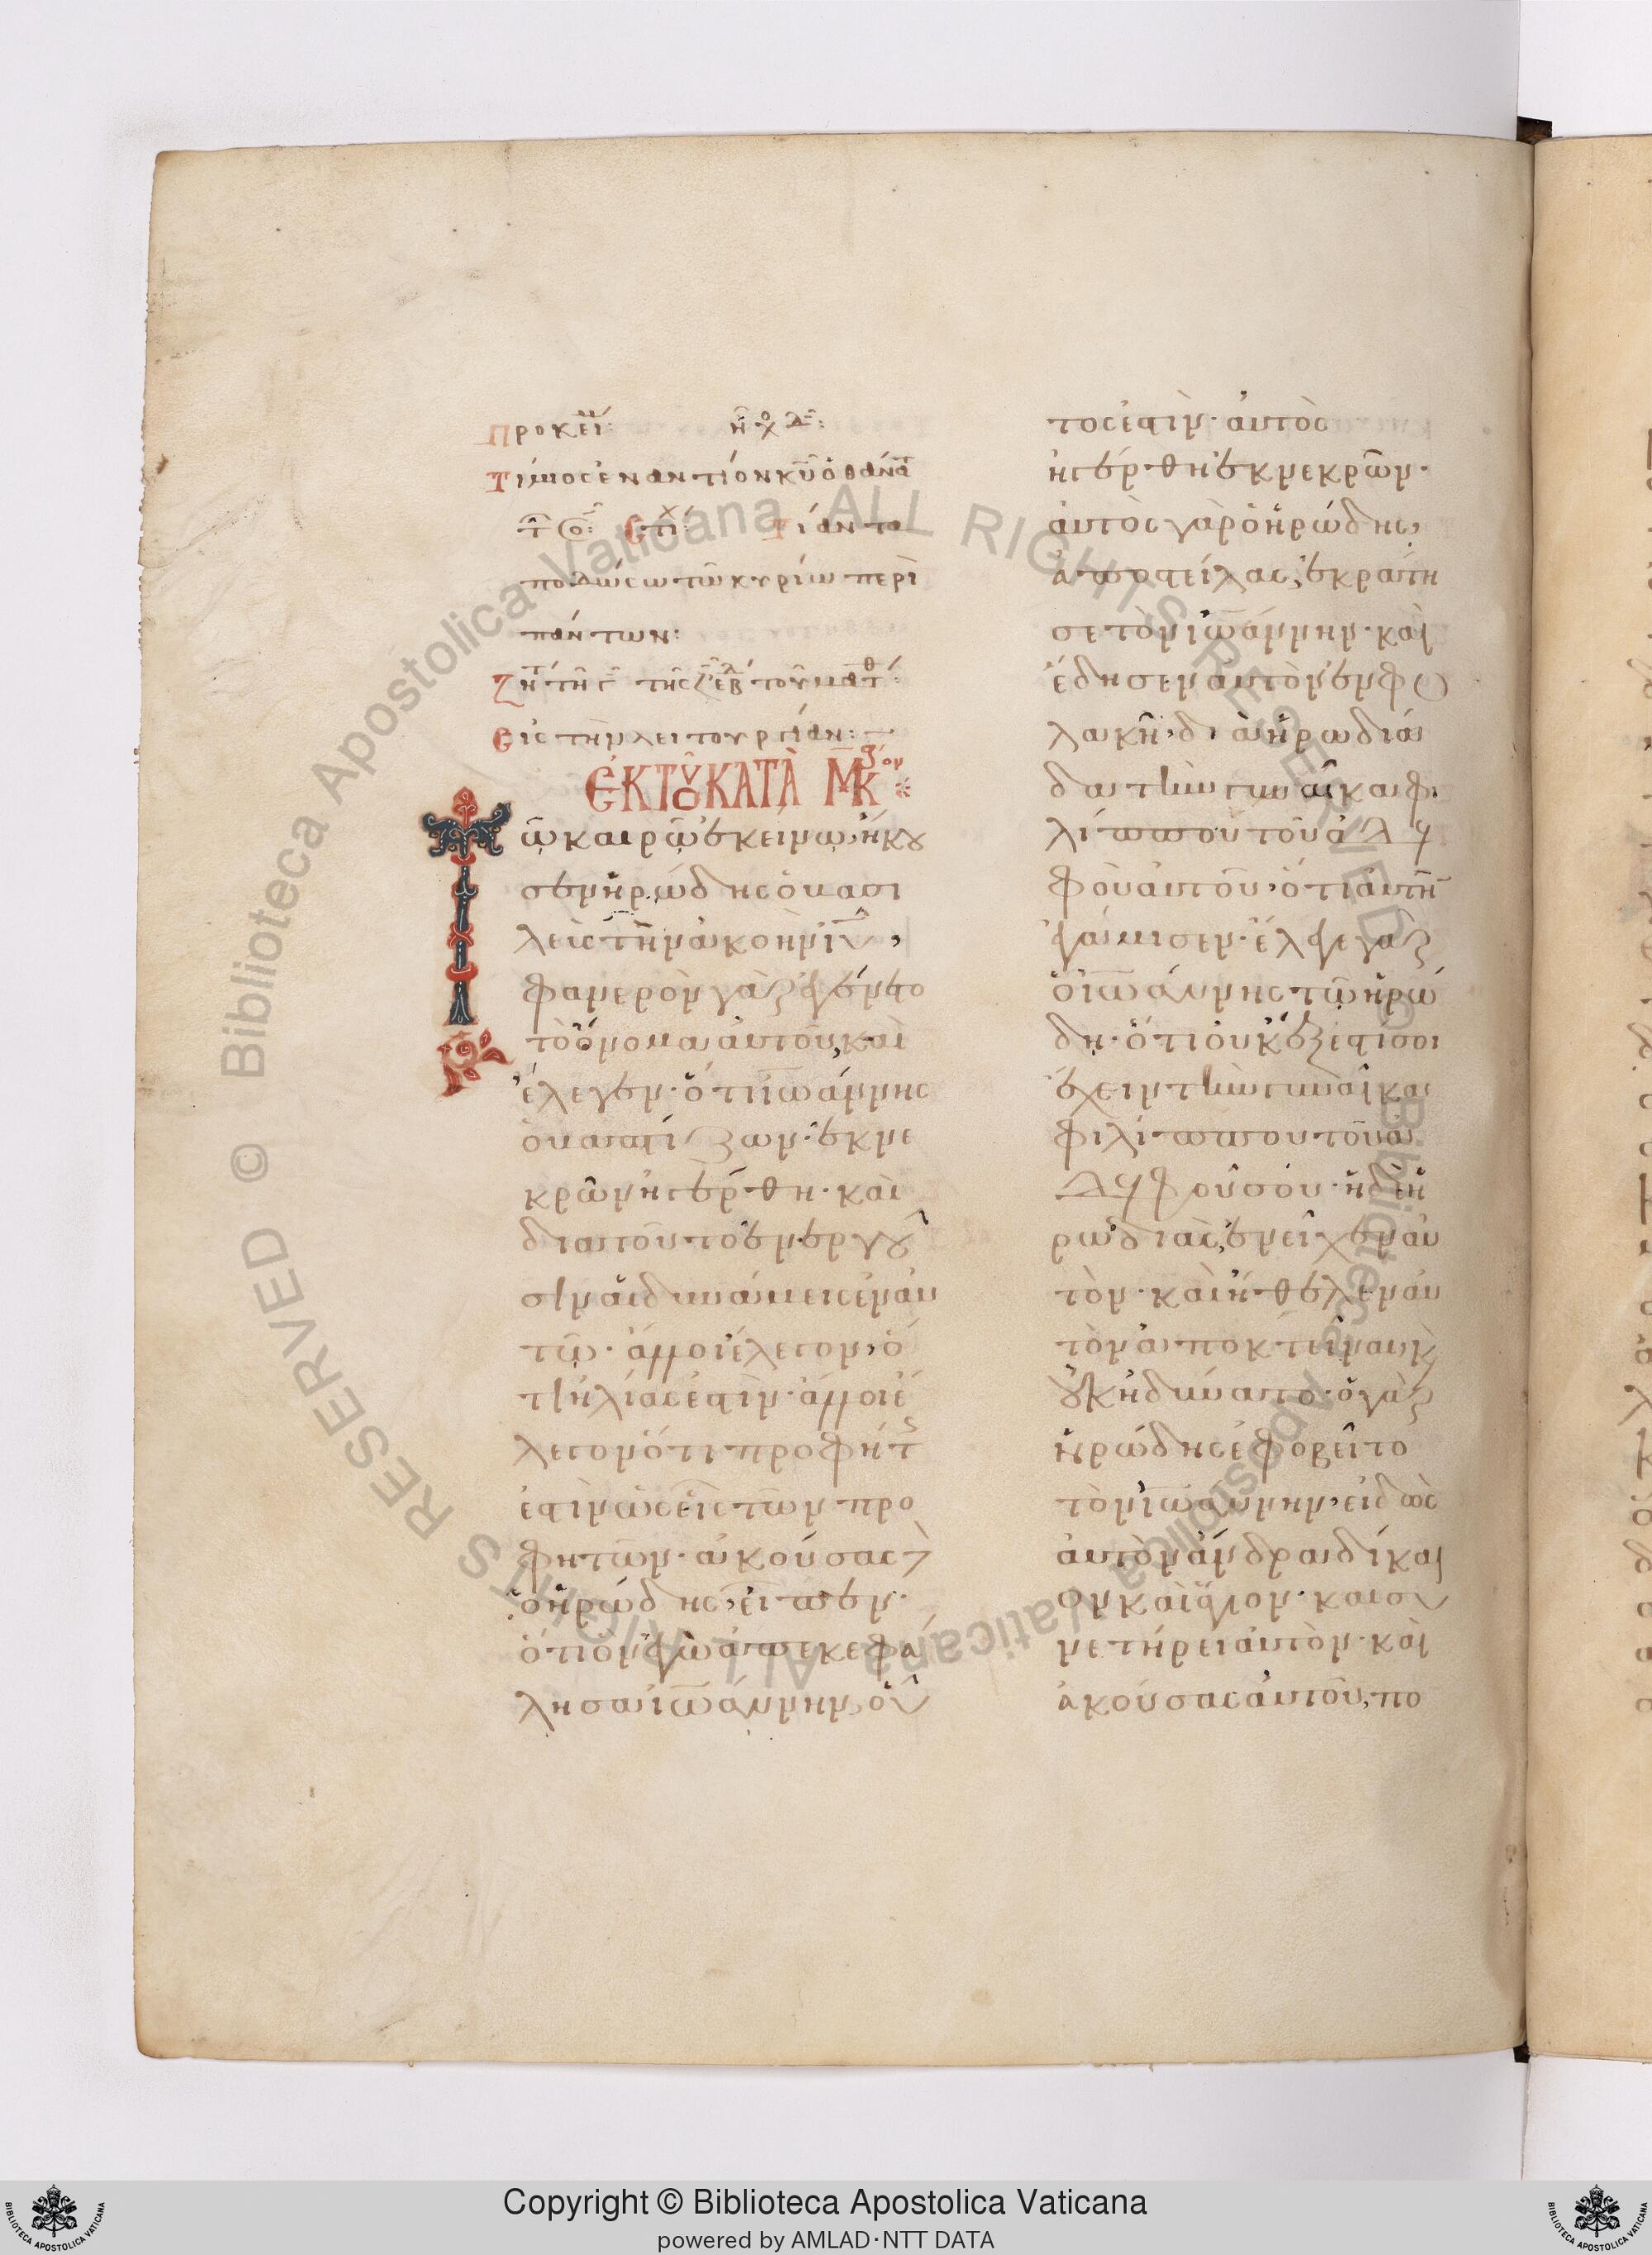 Προκεί: ἦχ Δ:
Τίμιος ἐναντίον κυ ὁ θάνα
τ ο: Στί: Τί ἀντα
ποδώσω τῶ κυρίω περὶ
πάντων:
Ζητ τῆ τῆς ζ ἑβ τοῦ ματθ:
Εἰς τὴν λειτουργίαν:
ἘΚ ΤΟΥ ΚΑΤᾺ ΜΚον
Τῶ καιρῶ ἐκείνω, ἤκου
σεν ἡρώδης ὁ βασι
λεὺς τὴν ἀκοὴν ιυ,
φανερὸν γὰρ ἐγένετο
τὸ ὄνομα αὐτοῦ, καὶ
ἔλεγεν· ὅτι ἰωάννης
ὁ βαπτίζων· ἐκ νε
κρῶν ἠγέρθη· καὶ
δια τοῦτο ἐνεργοῦ
σιν αἱ δυνάμεις ἐν αὐ
τῶ· ἄλλοι ἔλεγον, ὅ
τι ἠλίας ἐστὶν· ἄλλοι ἔ
λεγον ὅτι προφήτης
ἐστὶν ὡς εἷς τῶν προ
φητῶν· ἀκούσας δὲ
ὁ ἡρώδης, εἶπεν·
ὅτι ὃν ἐγὼ ἀπεκεφά
λησα ἰωάννην, οὗ
τος ἐστὶν· αὐτὸς
ἠγέρθη ἐκ νεκρῶν·
αὐτὸς γὰρ ὁ ἡρώδης,
ἀποστείλας, ἐκράτη
σε τὸν ἰωάννην· καὶ
ἔδησεν αὐτὸν ἐν φυ
λακῆ· δι ἁ ἡρωδιά
δα τὴν γυναῖκα φι
λίππου τοῦ ἀδελ
φοῦ αὐτοῦ, ὅτι αὐτὴν
ἐγάμισεν· ἔλεγε γὰρ
ὁ ἰωάννης τῶ ἡρώ
δη· ὅτι οὐκ ἔξεστί σοι
ἔχειν τὴν γυναῖκα
φιλίππου τοῦ ἀ
δελφοῦ σου· ἡ δὲ ἡ
ρωδιὰς, ἐνεῖχεν αὐ
τὸν· καὶ ἤθελεν αὐ
τὸν ἀποκτεῖναι, κ
οὐκ ἠδύνατο· ὁ γὰρ
ἡρώδης ἐφοβεῖτο
τὸν ἰωάννην, εἰδὼς
αὐτὸν ἄνδρα δίκαι
ον καὶ ἅγιον· καὶ συ
νετήρει αὐτὸν· καὶ
ἀκούσας αὐτοῦ, πο
Copyright © Biblioteca Apostolica Vaticana
powered by AMLAD·NTT DATA